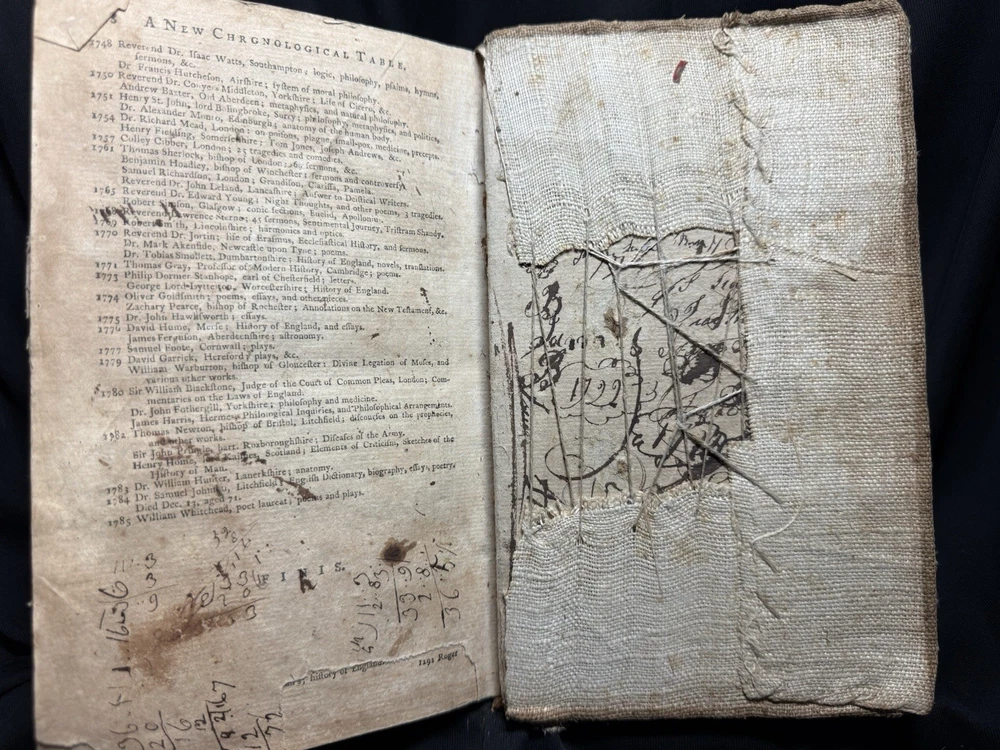 8 A NEW CHRONOLOGICAL TABLE.
1748 Reverend Dr. Isaac Watts, Southampton; logic, philosophy, psalms, hymns,
sermons, &c.
Dr. Francis Hutcheson, Airshire; system of moral philosophy.
1750 Reverend Dr. Conyers Middleton, Yorkshire; Life of Cicero, &c.
Andrew Baxter, Old Aberdeen; metaphysics, and natural philosophy.
1751 Henry St. John, lord Bolingbroke, Surry; philosophy, metaphysics, and politics,
Dr. Alexander Monro, Edinburgh; anatomy of the human body.
1754 Dr. Richard Mead, London; on poisons, plague, small-pox, medicine, precepts.
Henry Fielding, Somersetshire; Tom Jones, Joseph Andrews, &c.
1757 Colley Cibber, London; 25 tragedies and comedies.
1761 Thomas Sherlock, bishop of London; 69 sermons, &c.
Benjamin Hoadley, bishop of Winchester; sermons and controversy.
Samuel Richardson, London; Grandison, Clarissa, Pamela.
Reverend Dr. John Leland, Lancashire; Answer to Deistical Writers.
1765 Reverend Dr. Edward Young; Night Thoughts, and other poems, 3 tragedies.
Robert Simson, Glasgow; conic sections, Euclid, Apollonius.
Reverend Lawrence Sterne; 45 sermons, Sentimental Journey, Tristram Shandy.
Robert Smith, Lincolnshire; harmonics and optics.
1770 Reverend Dr. Jortin; life of Erasmus, Ecclesiastical History, and sermons.
Dr. Mark Akenside, Newcastle upon Tyne; poems.
Dr. Tobias Smollett, Dumbartonshire; History of England, novels, translations.
1771 Thomas Gray, Professor of Modern History, Cambridge; poems.
1773 Philip Dormer Stanhope, earl of Chesterfield; letters.
George Lord Lyttelton, Worcestershire; History of England.
1774 Oliver Goldsmith; poems, essays, and other pieces.
Zachary Pearce, bishop of Rochester; Annotations on the New Testament, &c.
1775 Dr. John Hawkesworth; essays.
1776 David Hume, Merse; History of England, and essays.
James Ferguson, Aberdeenshire; astronomy.
1777 Samuel Foote, Cornwall; plays.
1779 David Garrick, Hereford; plays, &c.
William Warburton, bishop of Gloucester; Divine Legation of Moses, and
various other works.
1780 Sir William Blackstone, Judge of the Court of Common Pleas, London; Com-
mentaries on the Laws of England.
Dr. John Fothergill, Yorkshire; philosophy and medicine.
James Harris, Hermes, Philological Inquiries, and Philosophical Arrangements.
1782 Thomas Newton, bishop of Bristol, Litchfield; discourses on the prophecies,
and other works.
Sir John Pringle, bart. Roxboroughshire; Diseases of the Army.
Henry Home, lord Kaimes, Scotland; Elements of Criticism, Sketches of the
History of Man.
1783 Dr. William Hunter, Lanerkshire; anatomy.
1784 Dr. Samuel Johnson, Litchfield; English Dictionary, biography, essays, poetry,
Died Dec. 13. aged 71.
1785 William Whitehead, poet laureat; poems and plays.
FINIS.
history of England.
1291 Roger
1722